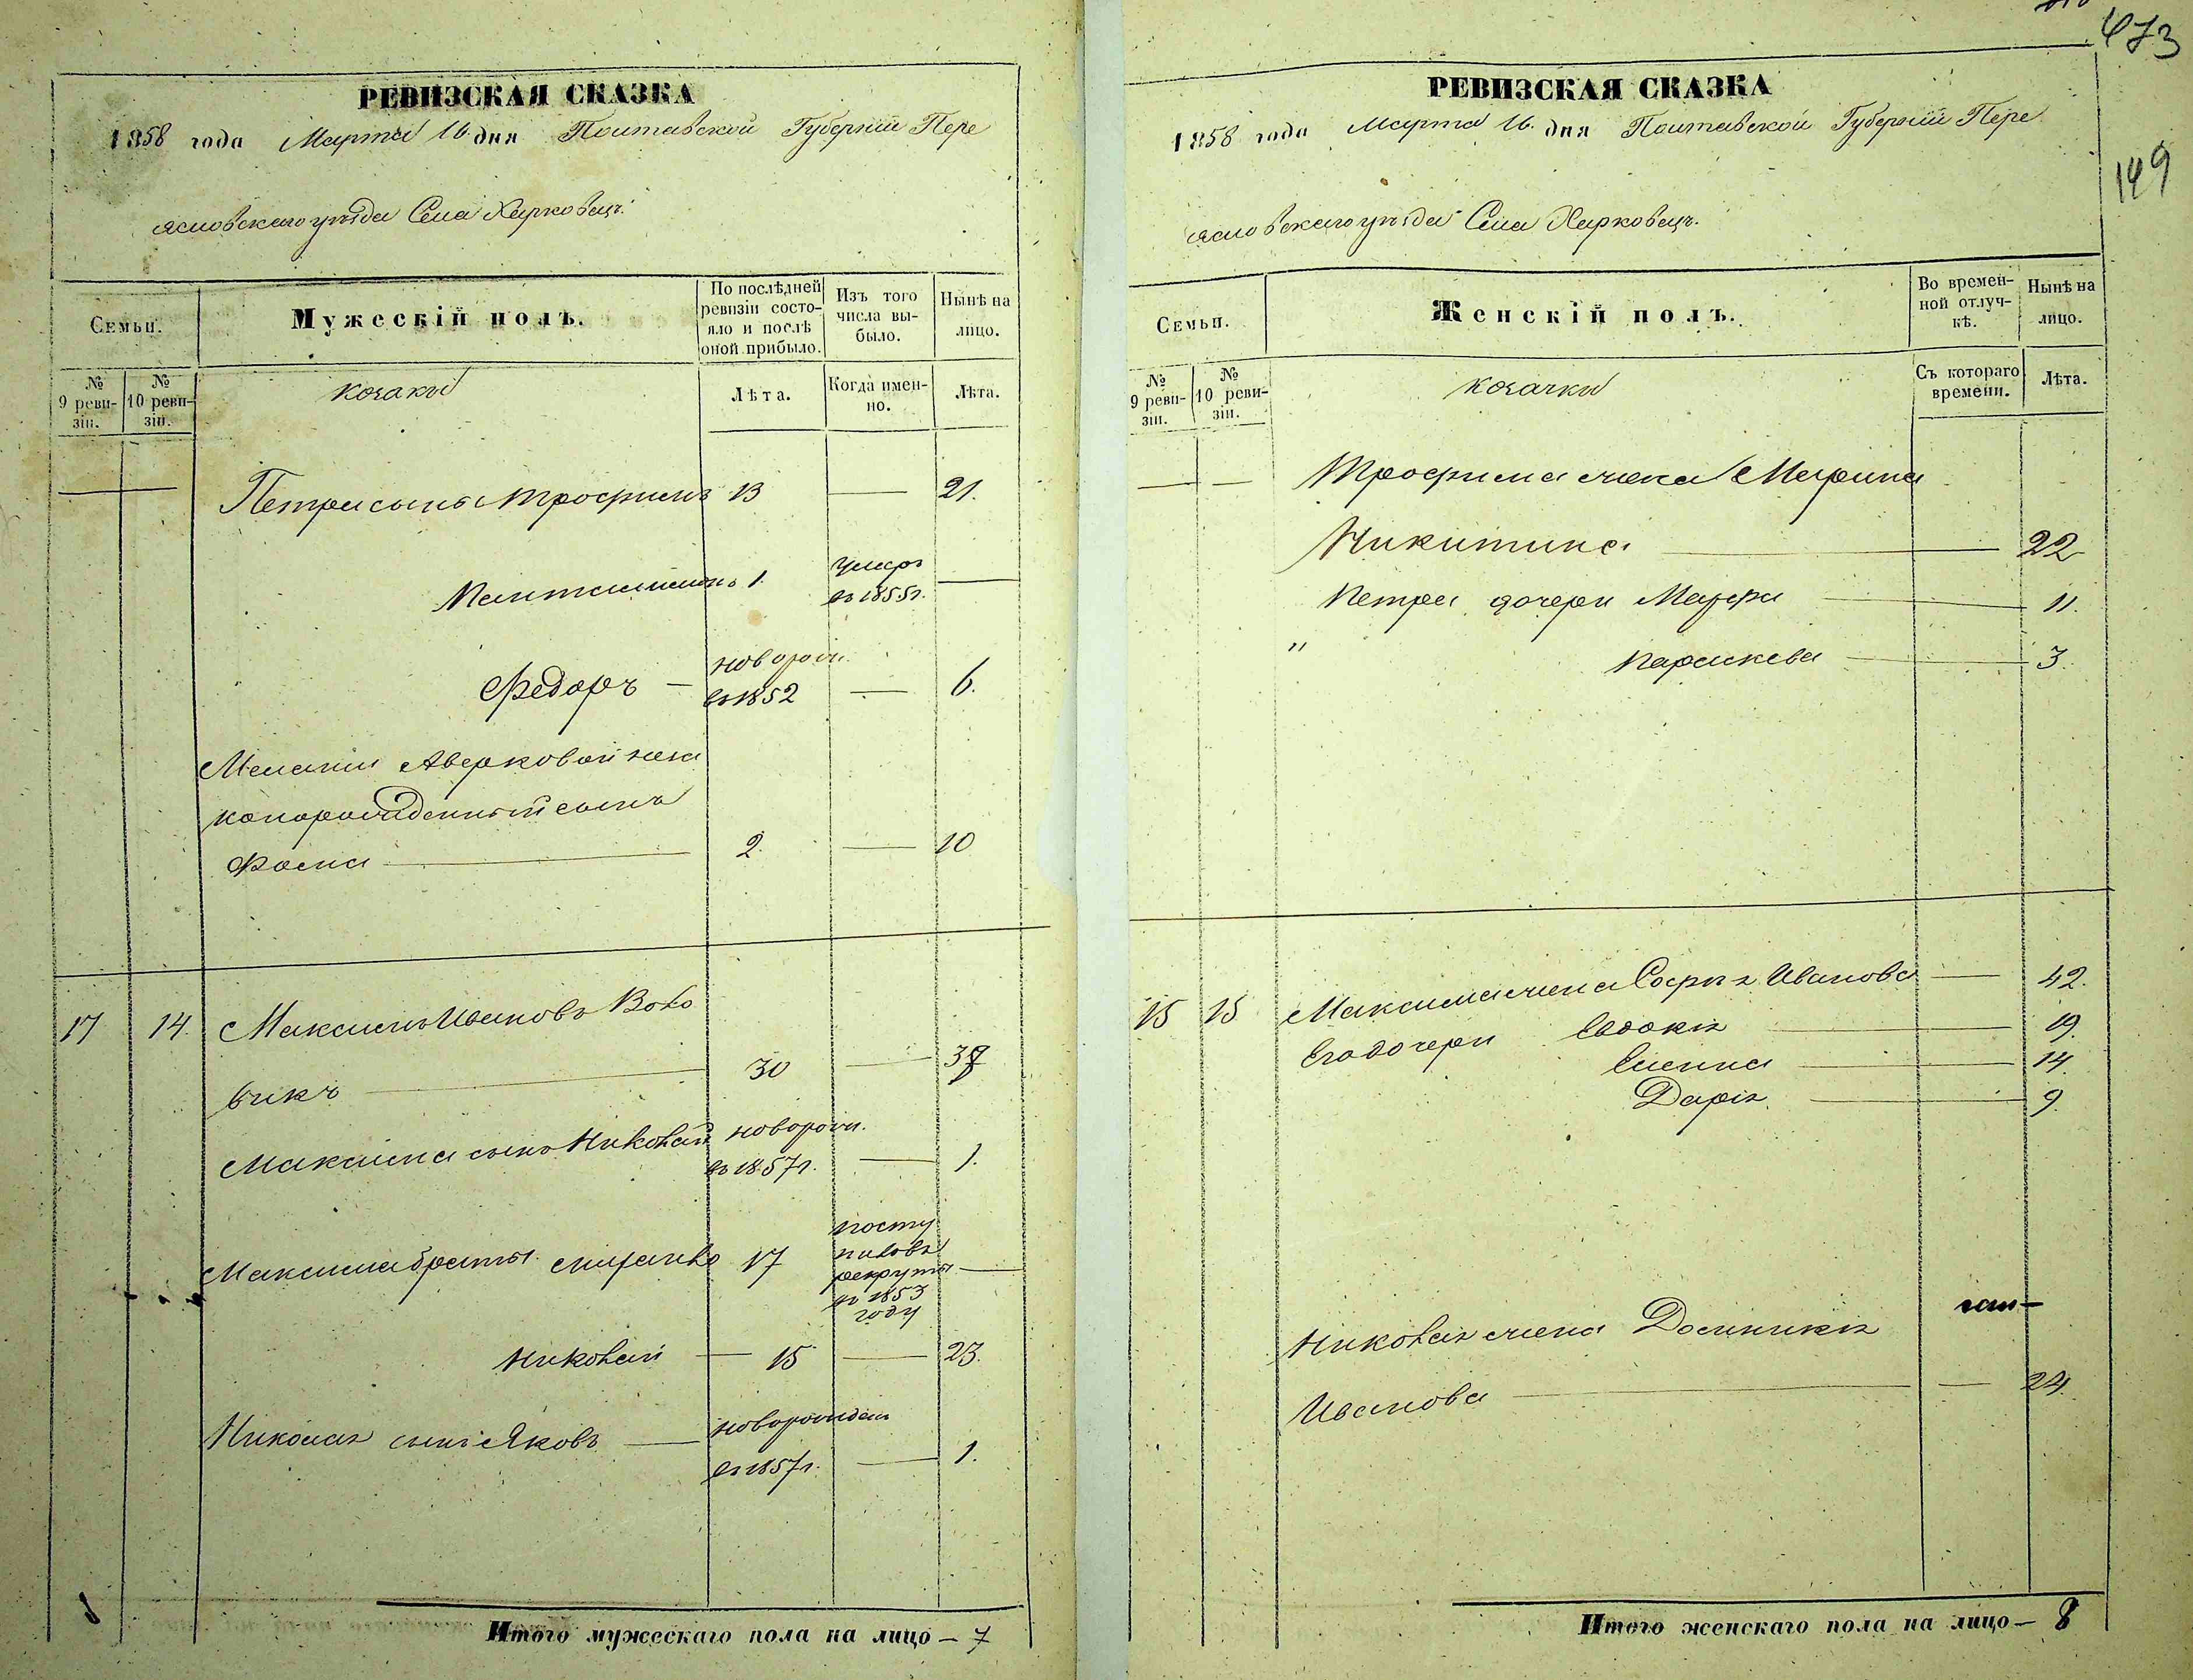 473
149
РЕВИЗСКАЯ СКАЗКА
1858 года Марта 16 дня Полтавской Губернии Пере
яславскаго уѣзда Села Харковецъ.
Семьи.
Мужескій полъ.
По послѣдней ревизіи состояло и послѣ оной прибыло.
Изъ того числа выбыло.
Нынѣ на лицо.
№ 9 ревизіи.
№ 10 ревизіи.
козаки
Лѣта.
Когда именно.
Лѣта.
Петра сынъ Трофимъ 13 — 21.
Пантелимонъ 1. умеръ въ 1855г. —
Федоръ — новорож. въ 1852 — 6.
Меланіи Аверковой неза
конорожденный сынъ
Фома — 2. — 10
17 14. Максимъ Ивановъ Воло
викъ — 30 — 38
Максима сынъ Николай новорож. въ 1857г. — 1.
Максима братья 17 посту
пилъ въ
рекруты —
въ 1853
году
Николай — 15 — 23.
Николая сынъ Яковъ — новорожден въ 1857г. — 1.
Итого мужескаго пола на лицо — 7
РЕВИЗСКАЯ СКАЗКА
1858 года Марта 16. дня Полтавской Губернии Пере
яславскаго уѣзда Села Харковецъ.
Семьи.
Женскій полъ.
Во временной отлучкѣ.
Нынѣ на лицо.
№ 9 ревизіи.
№ 10 ревизіи.
козачки
Съ котораго времени.
Лѣта.
— — Трофима жена Марина
Никитина — 22
Петра дочери Мавра — 11.
" Параскева — 3.
15 15 Максима жена Софія Иванова — 42.
Его дочери Евдокія — 19.
Елена — 14.
Дарія — 9.
Николая жена Домникія
Иванова — — 24.
Итого женскаго пола на лицо — 8